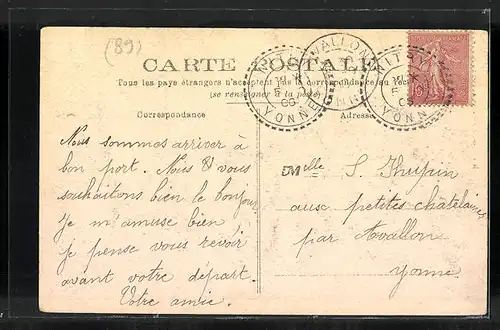 (89)
CARTE POSTALE
Tous les pays étrangers n'acceptent pas la correspondance au recto
(se renseigner à la poste)
Correspondance
Adresse
AVALLON
VITRY
YONNE
YONNE
Nous sommes arriver à
bon port. Nous & vous
souhaitons bien le bonjour
je m'amuse bien
je pense vous revoir
avant votre départ.
Votre amie.
Melle S.
aux petites châtelaines
par Avallon
Yonne